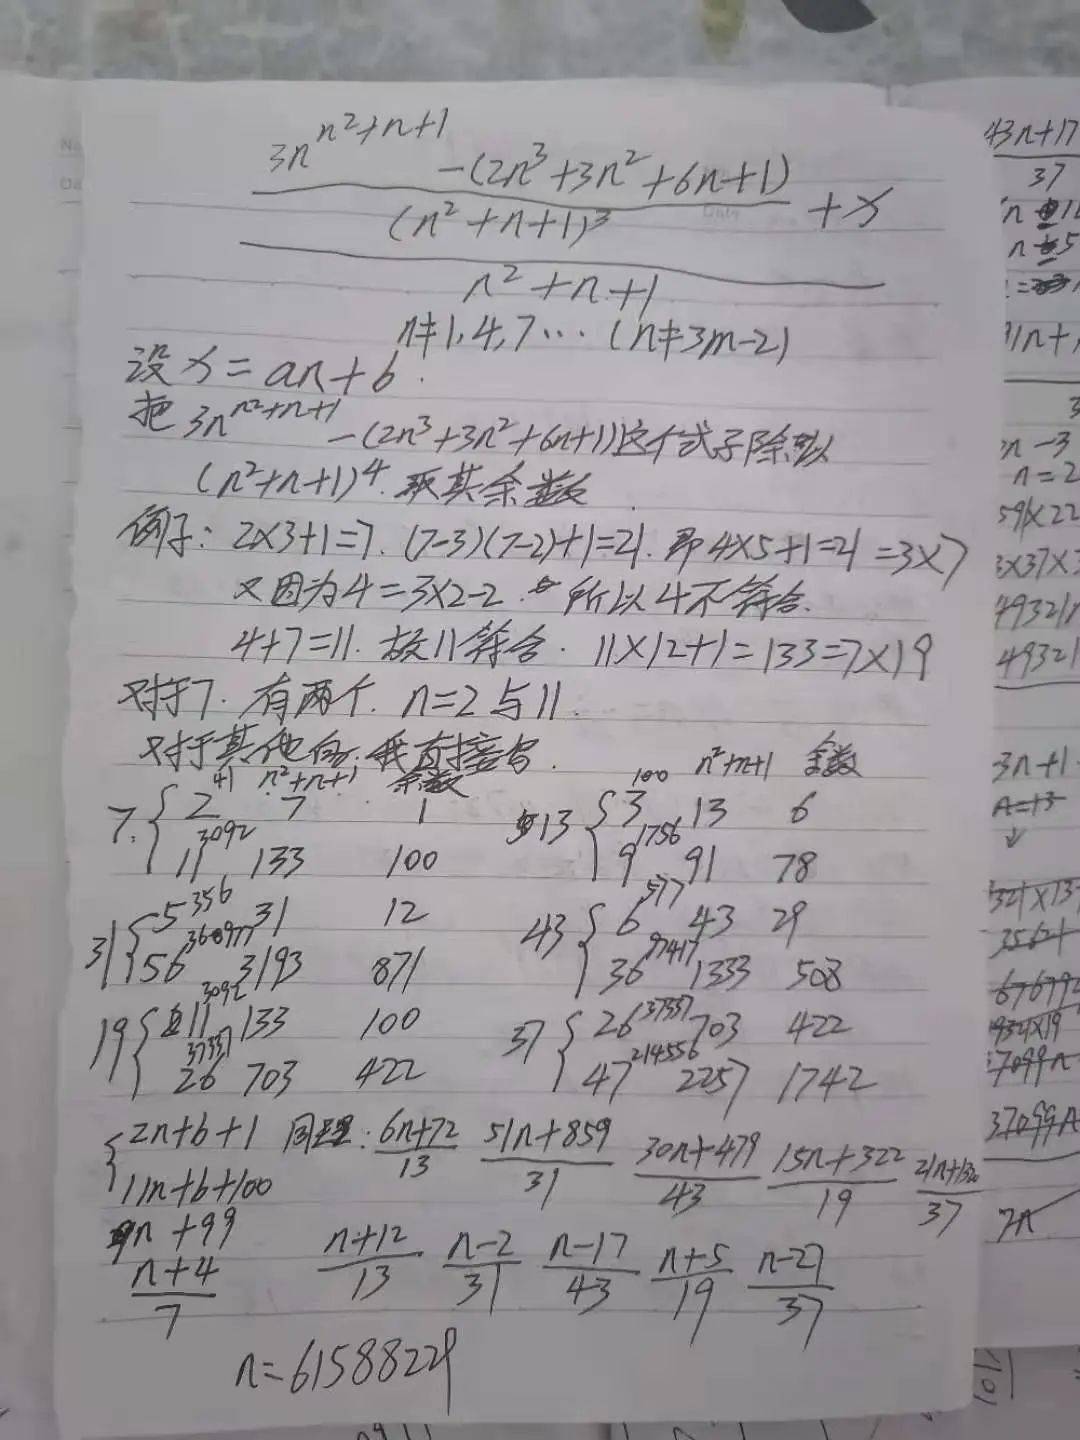 3n^(n²+n+1) -(2n³+3n²+6n+1)
(n²+n+1)³ +x
n²+n+1
n≠1,4,7… (n≠3m-2)
设x=an+b.
把3n^(n²+n+1) -(2n³+3n²+6n+1)这个式子除以
(n²+n+1)⁴.取其余数
例子: 2×3+1=7. (7-3)(7-2)+1=21. 即4×5+1=21=3×7
又因为4=3×2-2. 所以4不符合.
4+7=11. 故11符合. 11×12+1=133=7×19
对于7.有两个. n=2与11.
对于其他的.我直接写.
n²+n+1 余数 n²+n+1 余数
7. { 2^41 7 1 13 { 3^100 13 6
11^3092 133 100 9^1756 91 78
31 { 5^356 31 12 43 { 6^577 43 29
56 3193 871 36^97417 1333 508
19 { 11^3092 133 100 37 { 26^37337 703 422
26^37337 703 422 47^214556 2257 1742
{ 2n+b+1 同理: 6n+72/13 51n+859/31 30n+479/43 15n+322/19 /37
11n+b+100
9n+99
n+4/7 n+12/13 n-2/31 n-17/43 n+5/19 n-27/37
n=61588229
43n+17
37
3n-3
n=2
59×22
3×37×3
49321
49321
3n+1
A=13
321×13
3562
67679
932×19
7099n
37099A
7n
101